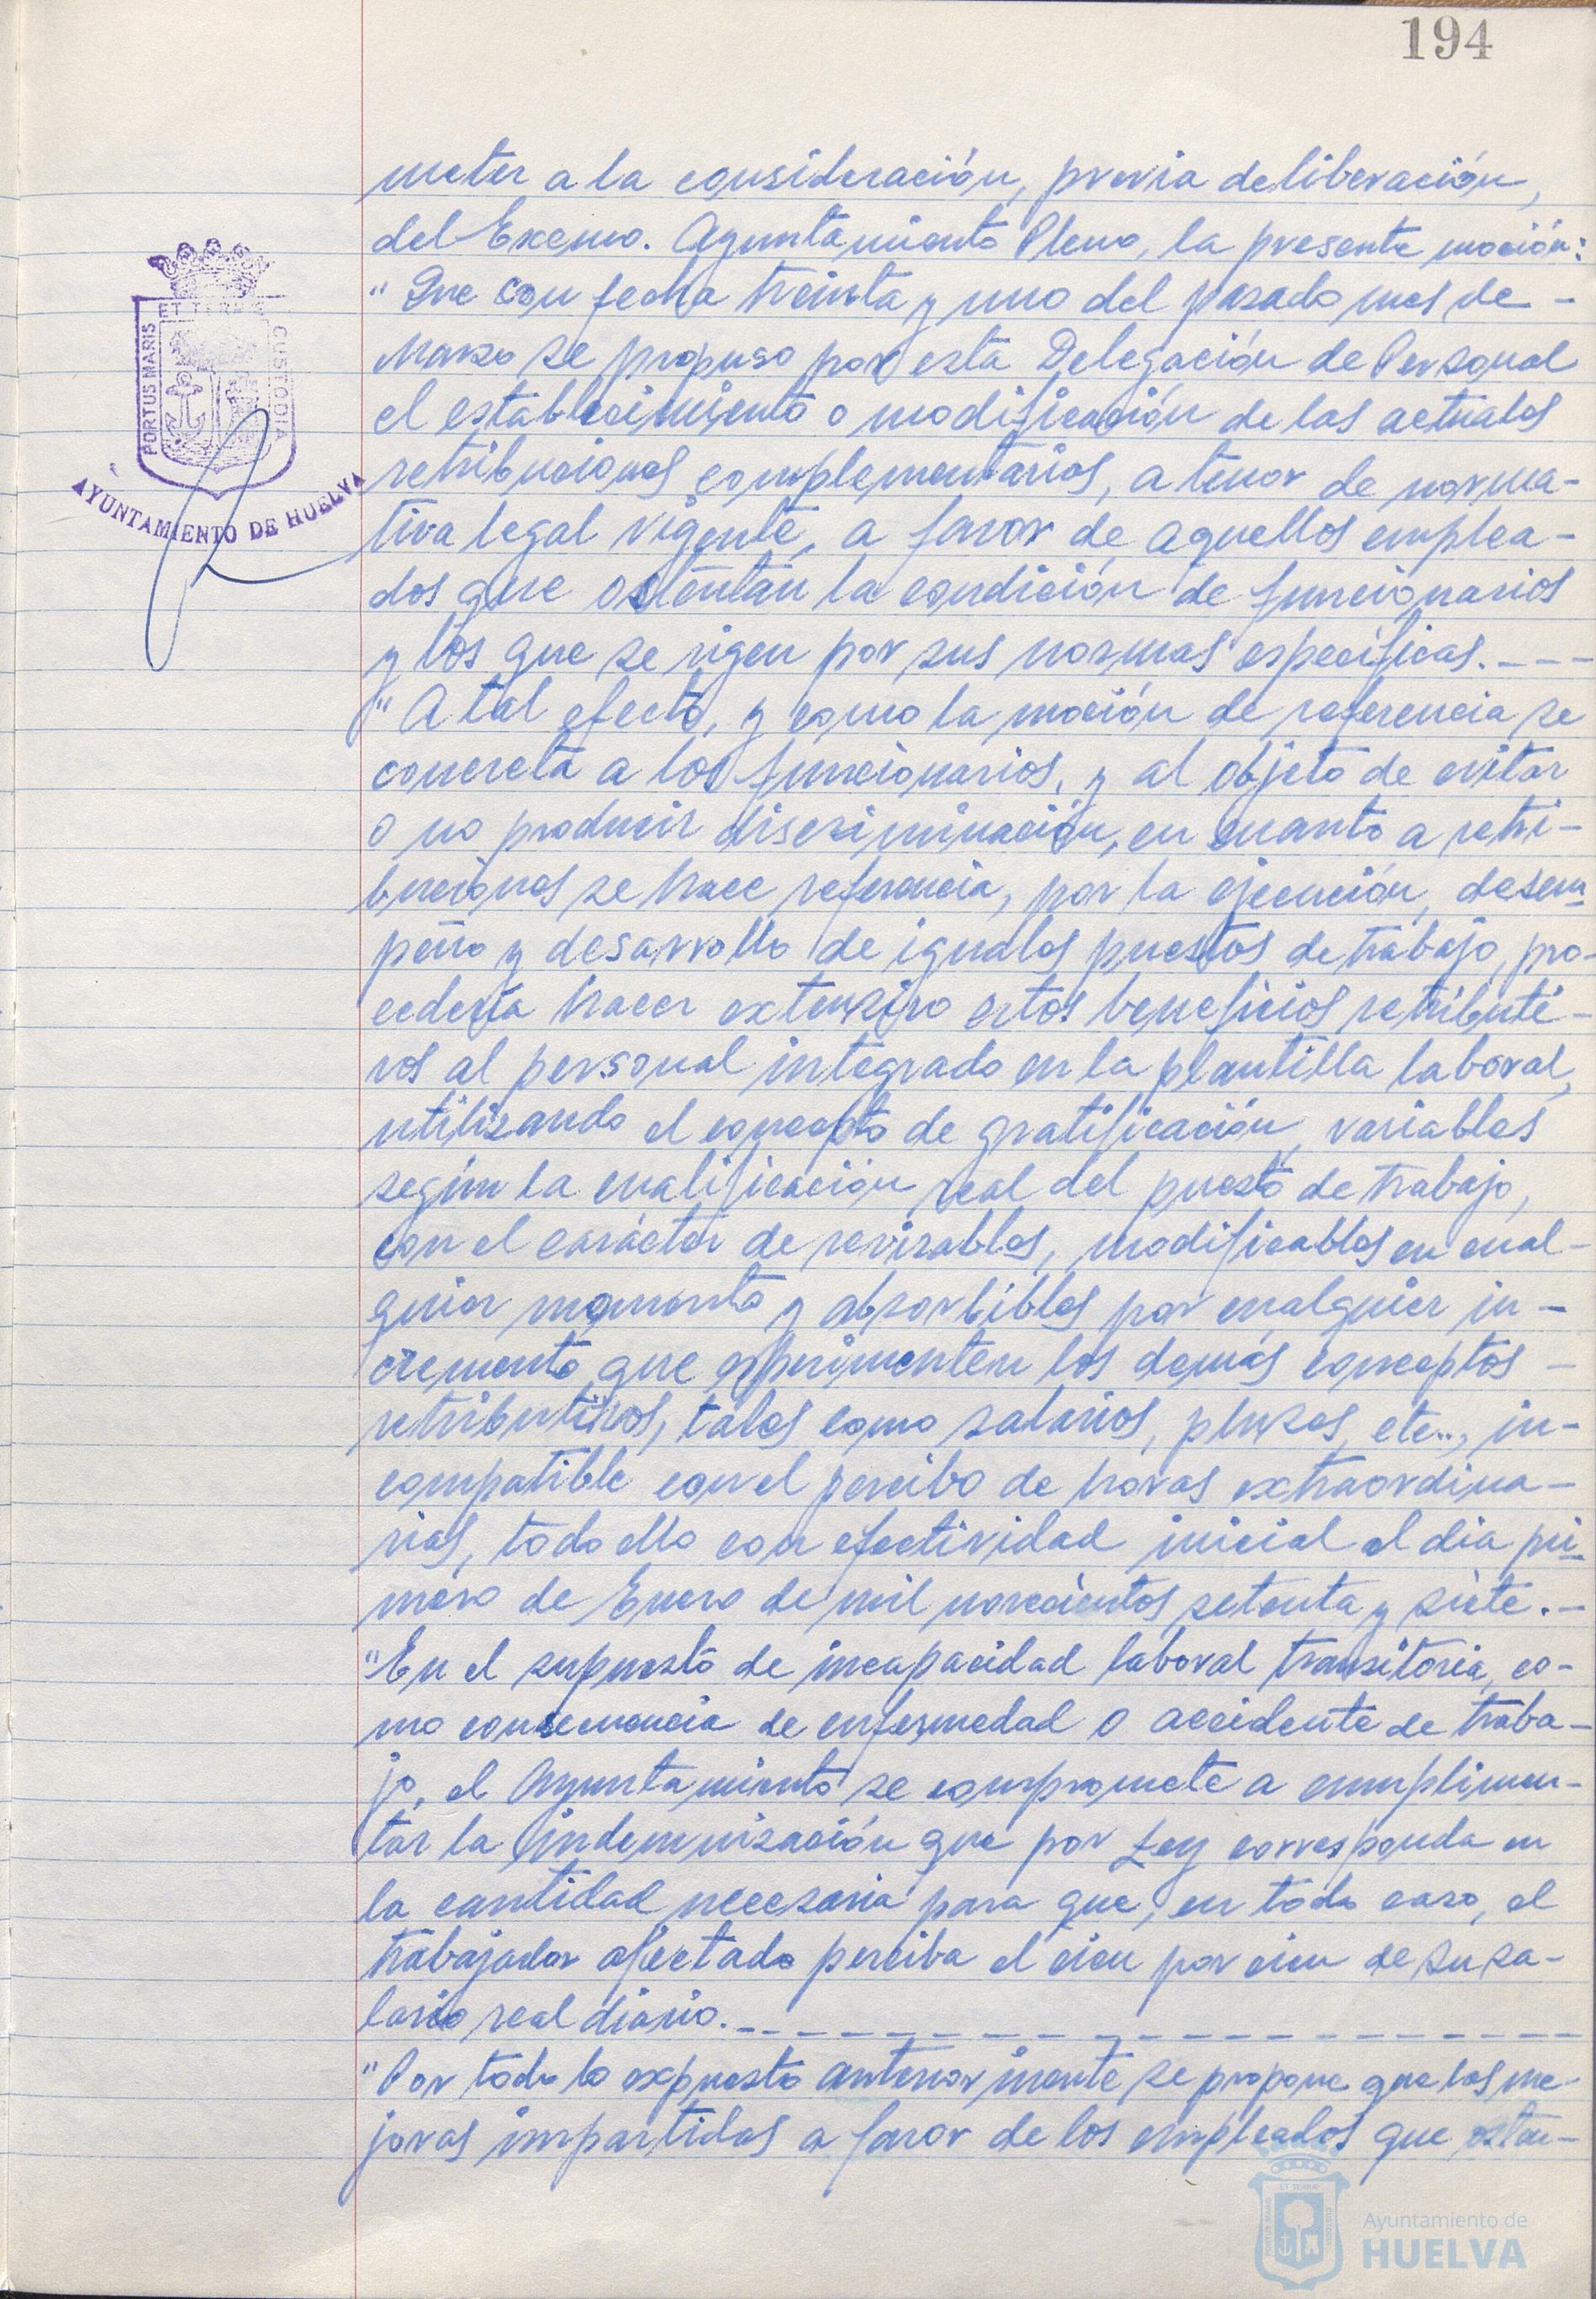 194
meter a la consideración, previa deliberación,
del Excmo. Ayuntamiento Pleno, la presente moción:
"Que con fecha treinta y uno del pasado mes de -
Marzo se propuso por esta Delegación de Personal
el establecimiento o modificación de las actuales
retribuciones complementarias, a tenor de norma-
tiva legal vigente, a favor de aquellos emplea-
dos que ostentan la condición de funcionarios
y los que se rigen por sus normas específicas.---
"A tal efecto, y como la moción de referencia se
concreta a los funcionarios, y al objeto de evitar
o no producir discriminación, en cuanto a retri-
buciones se hace referencia, por la ejecución, desem-
peño y desarrollo de iguales puestos de trabajo, pro-
cedería hacer extensivo estos beneficios retributi-
vos al personal integrado en la plantilla laboral,
utilizando el concepto de gratificación, variables
según la cualificación real del puesto de trabajo,
con el carácter de revisables, modificables en cual-
quier momento y absorbibles por cualquier in-
cremento que experimenten los demás conceptos -
retributivos, tales como salarios, pluses, etc.., in-
compatible con el percibo de horas extraordina-
rias, todo ello con efectividad inicial el dia pri-
mero de Enero de mil novecientos setenta y siete.-
"En el supuesto de incapacidad laboral transitoria, co-
mo consecuencia de enfermedad o accidente de traba-
jo, el Ayuntamiento se compromete a cumplimen-
tar la indemnización que por Ley corresponda en
la cantidad necesaria para que, en todo caso, el
trabajador afectado perciba el cien por cien de su sa-
lario real diario.-----------------
"Por todo lo expuesto anteriormente se propone que las me-
joras impartidas a favor de los empleados que osten-
PORTUS MARIS
ET TERRAE
CUSTODIA
AYUNTAMIENTO DE HUELVA
Ayuntamiento de
HUELVA